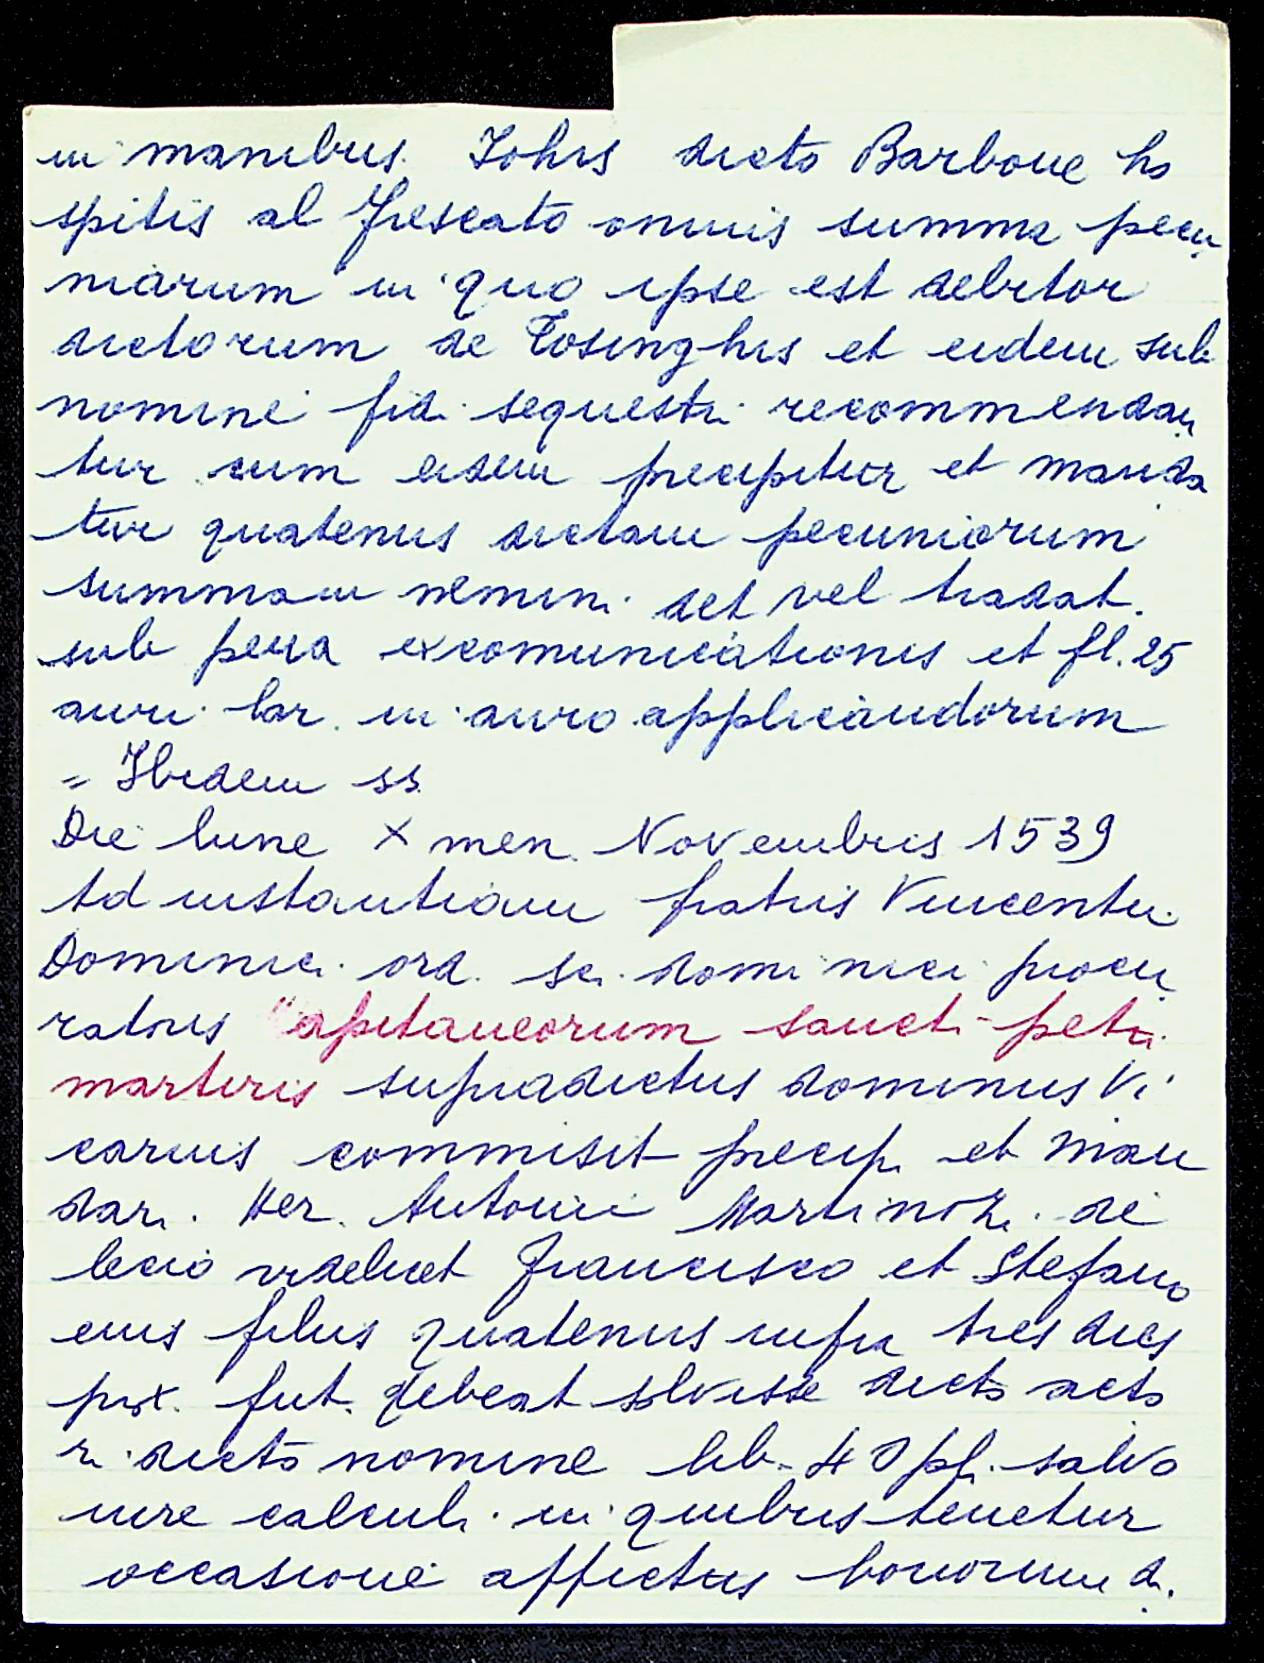 in manibus Johis dicto Barbone ho
spitis al frescato omnis summa pecu
niarum in quo ipse est debitor
dictorum de Tosinghis et eidem sub
nomine fidi sequestri recommendan
tur cum eidem precipitur et manda
tur quatenus dictam pecuniorum
summam nemini det vel tradat.
sub pena excomunicationis et fl. 25
auri lar. in auro applicandorum
= Ibidem ss.
Die lune X men. Novembris 1539
Ad instantiam fratris Vincentii
Dominici ord. sci. dominici procu
ratoris Capitaneorum sancti petri
martiris supradictus dominus Vi
carius commisit precip. et man
dari. Her. Antonii Martinozi de
lecio videlicet Francisco et Stefano
eius filiis quatenus infra tres dies
prox. fut. debeat solvisse dicto acto
ri dicto nomine lib. 40 pli. salvo
iure calculi. in quibus tenetur
occasione affictus bonorum d.